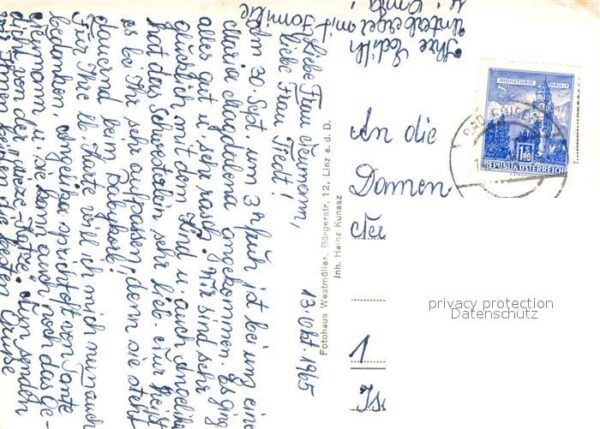 13. Okt. 1965
Liebe Frau Neumann,
liebe Frau Fredl!
Am 30. Sept. 3 Uhr früh ist bei uns eine
Maria Magdalena angekommen. Es ging
alles gut u. sehr rasch. Wir sind sehr
glücklich mit dem Kind u. auch Angelika
hat das Schwesterlein sehr lieb. Nur heißt
es bei ihr sehr aufpassen, denn sie steht
dauernd beim
Für Ihre lb. Karte will ich mich nun auch
bedanken, Angelika spricht oft von Tante
Neumann u. sie kann auch noch das Ge-
dicht von der Katze. Nun senden
wir Ihnen beiden die besten Grüße
Ihre Edith
Unterberger mit Familie
u. Omi!
Fotohaus Westmüller, Bürgerstr. 12, Linz a. d. D.
Inh. Heinz Kunasz
REPUBLIK ÖSTERREICH
1.80
An die
Damen
privacy protection
Datenschutz
1